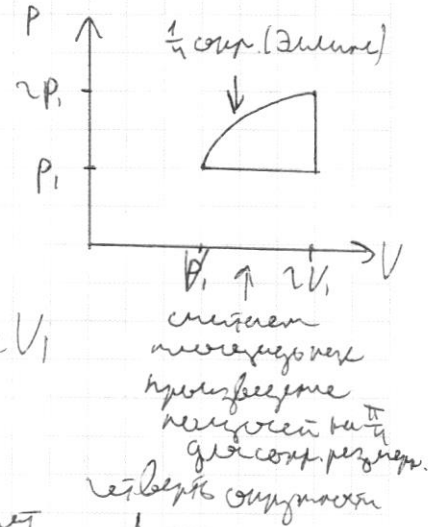 P
1/4 сокр. (Эллипс)
2P₁
P₁
V₁ 2V₁ V
V₁
считаем
площадь как
произведение
полуосей на π/4
для сохр. размерн.
четверть окружности
ет